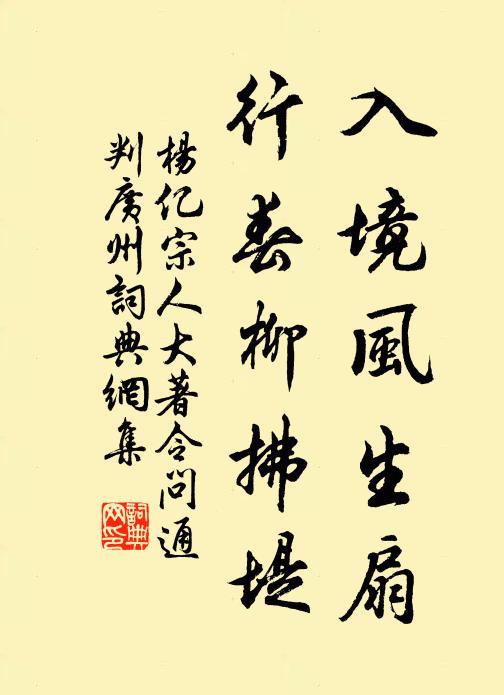 入境風生扇
行春柳拂堤
楊亿宗人大著令问通
判廣州詞典網集
詞典网印